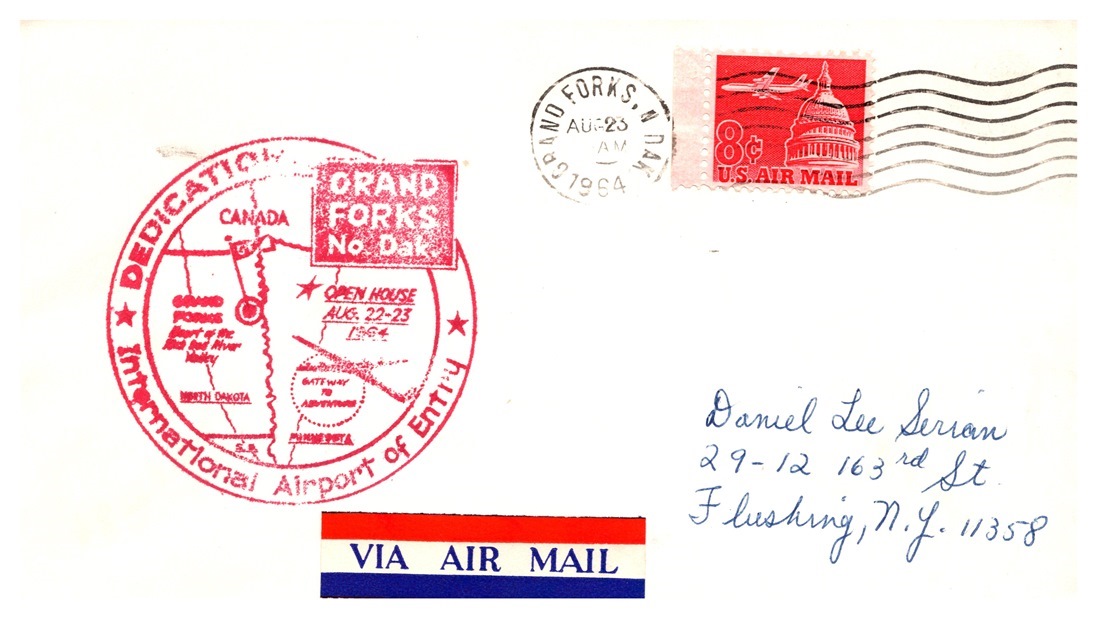 GRAND FORKS, N. DAK.
AUG 23
AM
1964
8¢
U.S. AIR MAIL
DEDICATION
GRAND
FORKS
No. Dak.
CANADA
OPEN HOUSE
AUG. 22-23
1964
GRAND
FORKS
Heart of the
Red River
Valley
GATEWAY
TO
ADVENTURE
NORTH DAKOTA
MINNESOTA
S.D.
International Airport of Entry
Daniel Lee Serian
29-12 163rd St.
Flushing, N.Y. 11358
VIA AIR MAIL